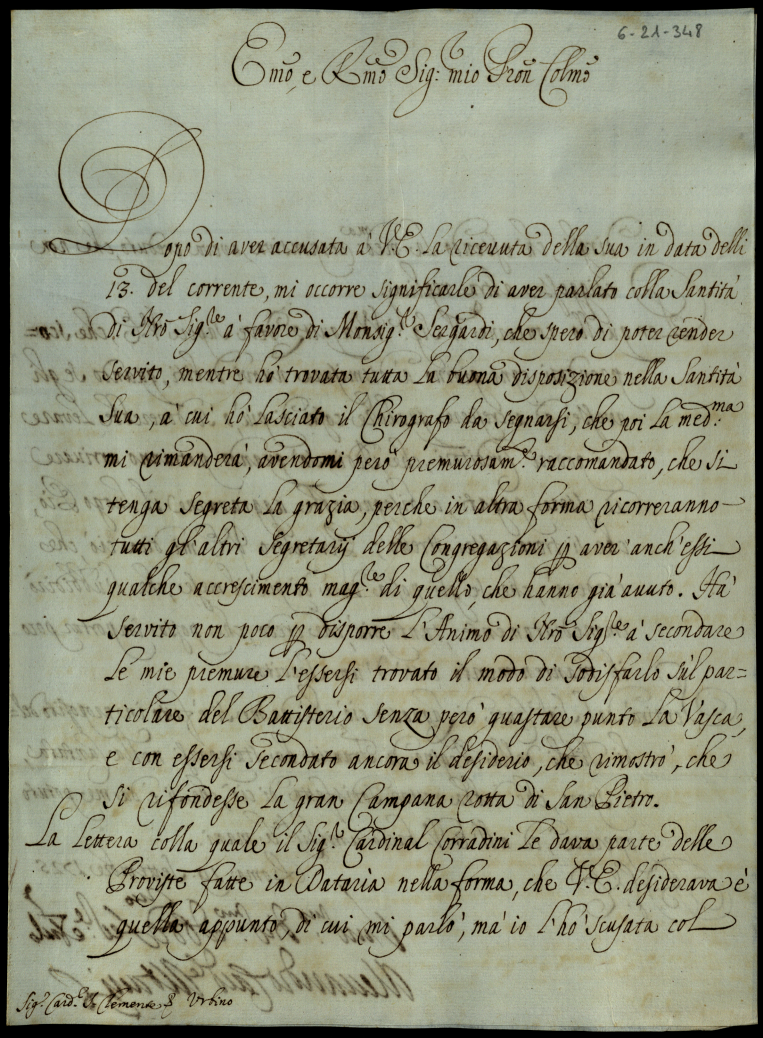 6-21-348
Emo, e Rmo Sig.r mio Pron Colmo
Dopo di aver accusata à V.E. la ricevuta della sua in data delli
13. del corrente, mi occorre significarle di aver parlato colla Santità
di Nro Sig.re à favore di Monsig.r Sergardi, che spero di poter render
servito, mentre hò trovata tutta la buona disposizione nella Santità
Sua, à cui hò lasciato il Chirografo da segnarsi, che poi la med.ma
mi rimanderà, avendomi però premurosam.te raccomandato, che si
tenga segreta la grazia, perche in altra forma ricorreranno
tutti gl'altri Segretarij delle Congregazioni p aver anch'essi
qualche accrescimento mag.re di quello, che hanno già avuto. Hà
servito non poco p disporre l'Animo di Nro Sig.re à secondare
le mie premure l'essersi trovato il modo di sodisfarlo sùl par=
ticolare del Battisterio senza però guastare punto la Vasca,
e con essersi secondato ancora il desiderio, che rimostrò, che
si rifondesse la gran Campana rotta di San Pietro.
La lettera colla quale il Sig.r Cardinal Corradini le dava parte delle
Proviste fatte in Dataria nella forma, che V.E. desiderava è
quella appunto, di cui mi parlò, mà io l'hò scusata col
Sig.r Card.e S. Clemente Urbino